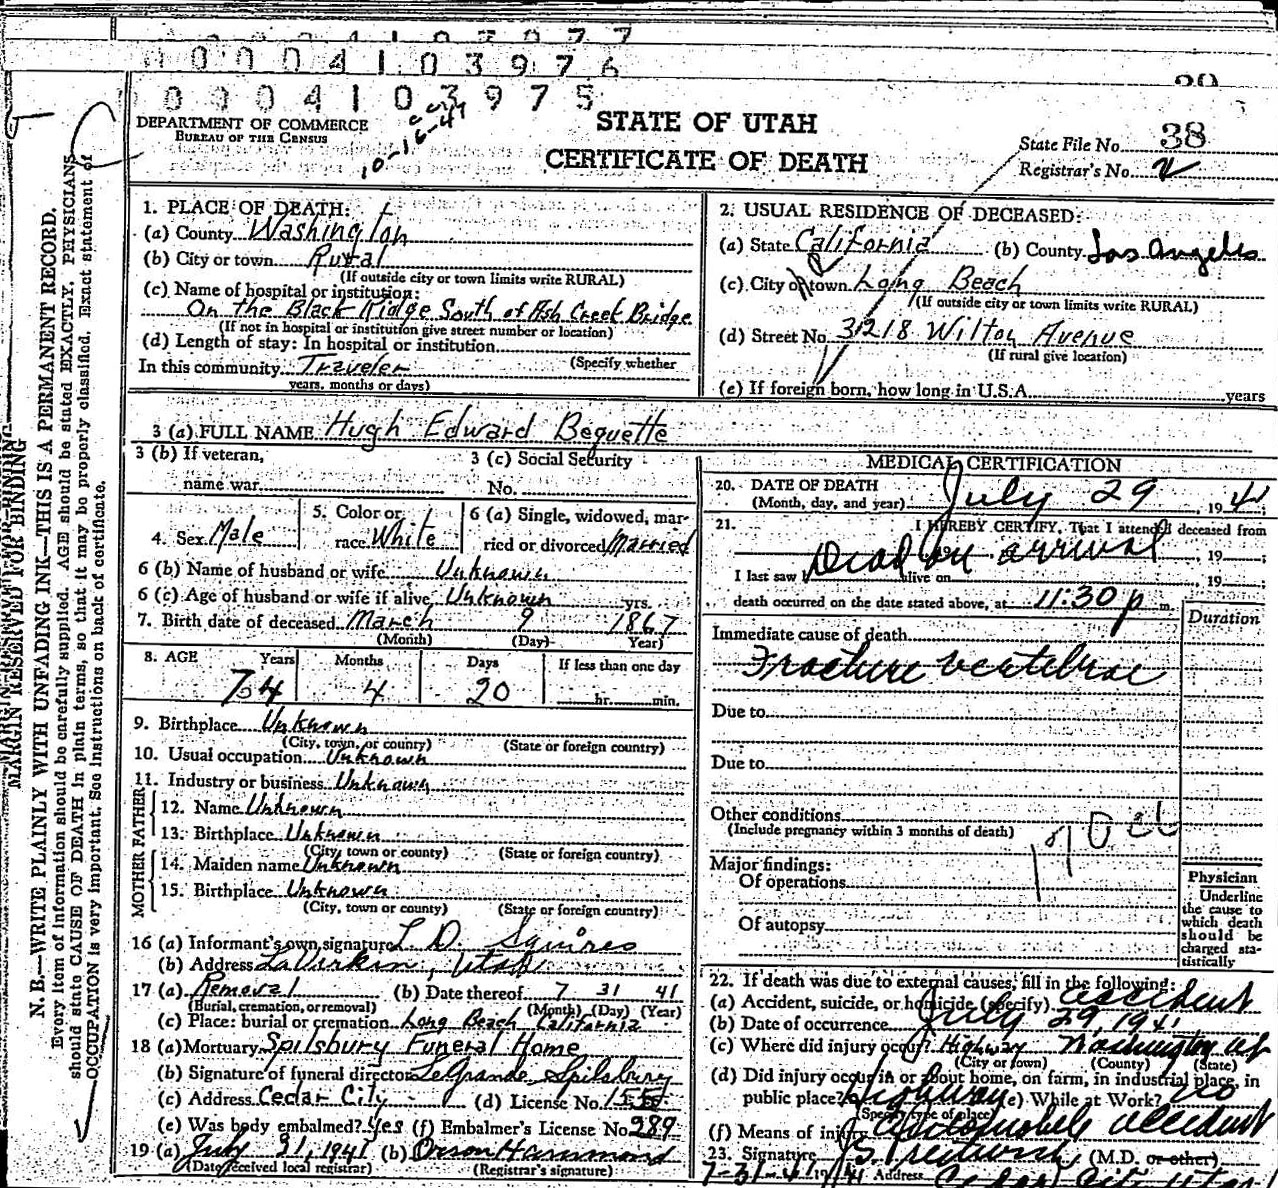 0 0 0 4 1 0 3 9 7 7
0 0 0 4 1 0 3 9 7 6
0 0 0 4 1 0 3 9 7 5
DEPARTMENT OF COMMERCE
BUREAU OF THE CENSUS
10-16-41
STATE OF UTAH
CERTIFICATE OF DEATH
State File No. 38
Registrar's No. 2
MARGIN RESERVED FOR BINDING
N. B.—WRITE PLAINLY WITH UNFADING INK—THIS IS A PERMANENT RECORD.
Every item of information should be carefully supplied. AGE should be stated EXACTLY. PHYSICIANS
should state CAUSE OF DEATH in plain terms, so that it may be properly classified. Exact statement of
OCCUPATION is very important. See instructions on back of certificate.
1. PLACE OF DEATH:
(a) County Washington
(b) City or town Rural
(If outside city or town limits write RURAL)
(c) Name of hospital or institution:
On the Black Ridge South of Ash Creek Bridge
(If not in hospital or institution give street number or location)
(d) Length of stay: In hospital or institution
(Specify whether
In this community Traveler
years, months or days)
2. USUAL RESIDENCE OF DECEASED:
(a) State California (b) County Los Angeles
(c) City or town Long Beach
(If outside city or town limits write RURAL)
(d) Street No. 3218 Wilton Avenue
(If rural give location)
(e) If foreign born, how long in U.S.A. years
3 (a) FULL NAME Hugh Edward Bequette
3 (b) If veteran,
name war
3 (c) Social Security
No.
4. Sex Male
5. Color or
race White
6 (a) Single, widowed, mar-
ried or divorced Married
6 (b) Name of husband or wife Unknown
6 (c) Age of husband or wife if alive Unknown yrs.
7. Birth date of deceased March 9 1867
(Month) (Day) Year)
8. AGE Years Months Days If less than one day
74 4 20 hr. min.
9. Birthplace Unknown
(City, town, or county) (State or foreign country)
10. Usual occupation Unknown
11. Industry or business Unknown
FATHER
12. Name Unknown
13. Birthplace Unknown
(City, town or county) (State or foreign country)
MOTHER
14. Maiden name Unknown
15. Birthplace Unknown
(City, town or county) (State or foreign country)
16 (a) Informant's own signature L D. Squires
(b) Address LaVirkin, Utah
17 (a) Removal (b) Date thereof 7 31 41
(Burial, cremation, or removal) (Month) (Day) (Year)
(c) Place: burial or cremation Long Beach California
18 (a) Mortuary Spilsbury Funeral Home
(b) Signature of funeral director LeGrande Spilsbury
(c) Address Cedar City (d) License No.
(e) Was body embalmed? Yes (f) Embalmer's License No. 289
19 (a) July 31, 1941 (b) Orson Hammond
(Date received local registrar) (Registrar's signature)
MEDICAL CERTIFICATION
20. DATE OF DEATH
(Month, day, and year) July 29, 1941;
21. I HEREBY CERTIFY, That I attended deceased from
Dead on arrival, 19
I last saw alive on , 19 ;
death occurred on the date stated above, at 11:30 p m.
Duration
Immediate cause of death
Fracture vertebrae
Due to
Due to
Other conditions
(Include pregnancy within 3 months of death)
Major findings:
Of operations
Of autopsy
Physician
Underline
the cause to
which death
should be
charged sta-
tistically
22. If death was due to external causes, fill in the following:
(a) Accident, suicide, or homicide (specify) accident
(b) Date of occurrence July 29, 1941
(c) Where did injury occur? Highway Washington Ut
(City or town) (County) (State)
(d) Did injury occur in or about home, on farm, in industrial place, in
public place? Highway (e) While at Work? no
(Specify type of place)
(f) Means of injury Automobile accident
23. Signature (M.D. or other)
7-31-41 Address Cedar City Utah